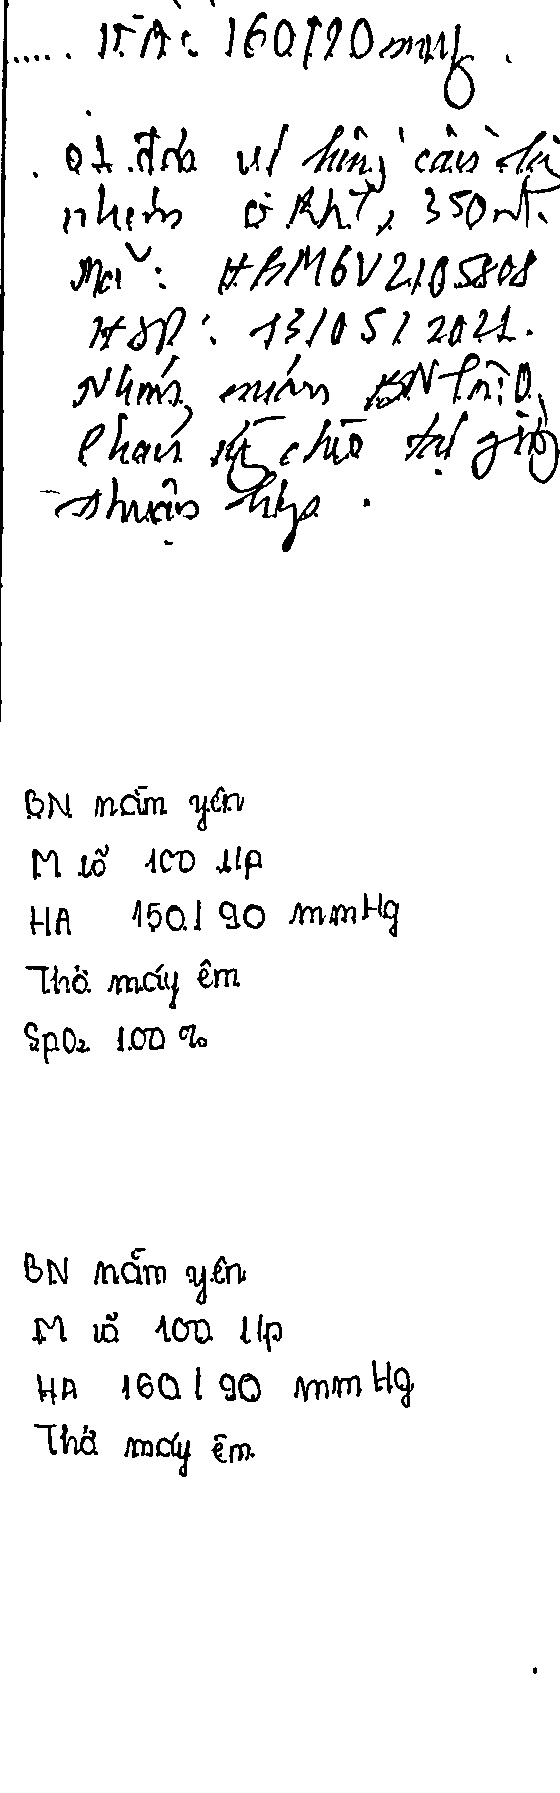 HA: 160/90 mmHg
01 đơn vị hồng cầu
nhóm O Rh+, 350ml.
Mã: HBM6V2105808
HSD: 13/05/2021.
Nhóm máu BN là: O.
Phản ứng chéo tại giường
thuận hợp.
BN nằm yên
M rõ 100 l/p
HA 150/90 mmHg
Thở máy êm
SpO2 100%
BN nằm yên
M rõ 100 l/p
HA 160/90 mmHg
Thở máy êm